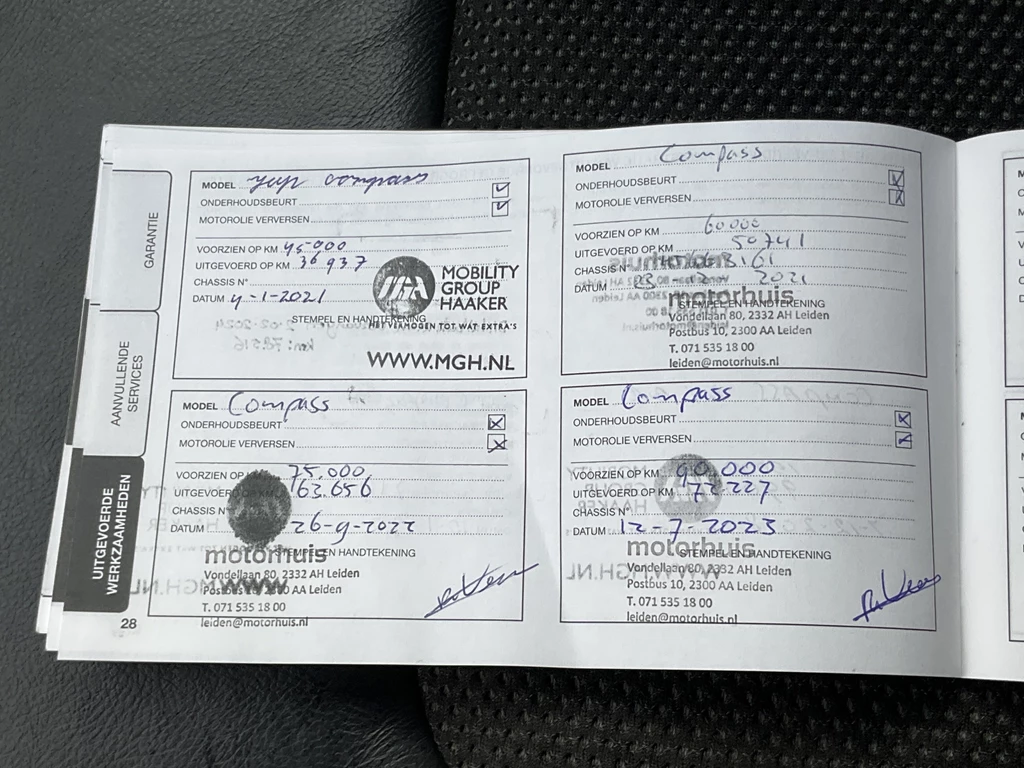 GARANTIE
AANVULLENDE
SERVICES
UITGEVOERDE
WERKZAAMHEDEN
28
MODEL jeep compass
ONDERHOUDSBEURT
MOTOROLIE VERVERSEN
VOORZIEN OP KM 45-000
UITGEVOERD OP KM 36937
CHASSIS N°
DATUM 4-1-2021
STEMPEL EN HANDTEKENING
MOBILITY
GROUP
HAAKER
HET VERMOGEN TOT WAT EXTRA'S
WWW.MGH.NL
MODEL Compass
ONDERHOUDSBEURT
MOTOROLIE VERVERSEN
VOORZIEN OP KM 60000
UITGEVOERD OP KM 50741
CHASSIS N°
DATUM 2021
motorhuis
STEMPEL EN HANDTEKENING
Vondellaan 80, 2332 AH Leiden
Postbus 10, 2300 AA Leiden
T. 071 535 18 00
leiden@motorhuis.nl
MODEL Compass
ONDERHOUDSBEURT
MOTOROLIE VERVERSEN
VOORZIEN OP KM 75.000
UITGEVOERD OP KM 63.656
CHASSIS N°
DATUM 26-9-2022
motorhuis
STEMPEL EN HANDTEKENING
Vondellaan 80, 2332 AH Leiden
Postbus 10, 2300 AA Leiden
T. 071 535 18 00
leiden@motorhuis.nl
MODEL Compass
ONDERHOUDSBEURT
MOTOROLIE VERVERSEN
VOORZIEN OP KM 90.000
UITGEVOERD OP KM 72227
CHASSIS N°
DATUM 12-7-2023
motorhuis
STEMPEL EN HANDTEKENING
Vondellaan 80, 2332 AH Leiden
Postbus 10, 2300 AA Leiden
T. 071 535 18 00
leiden@motorhuis.nl